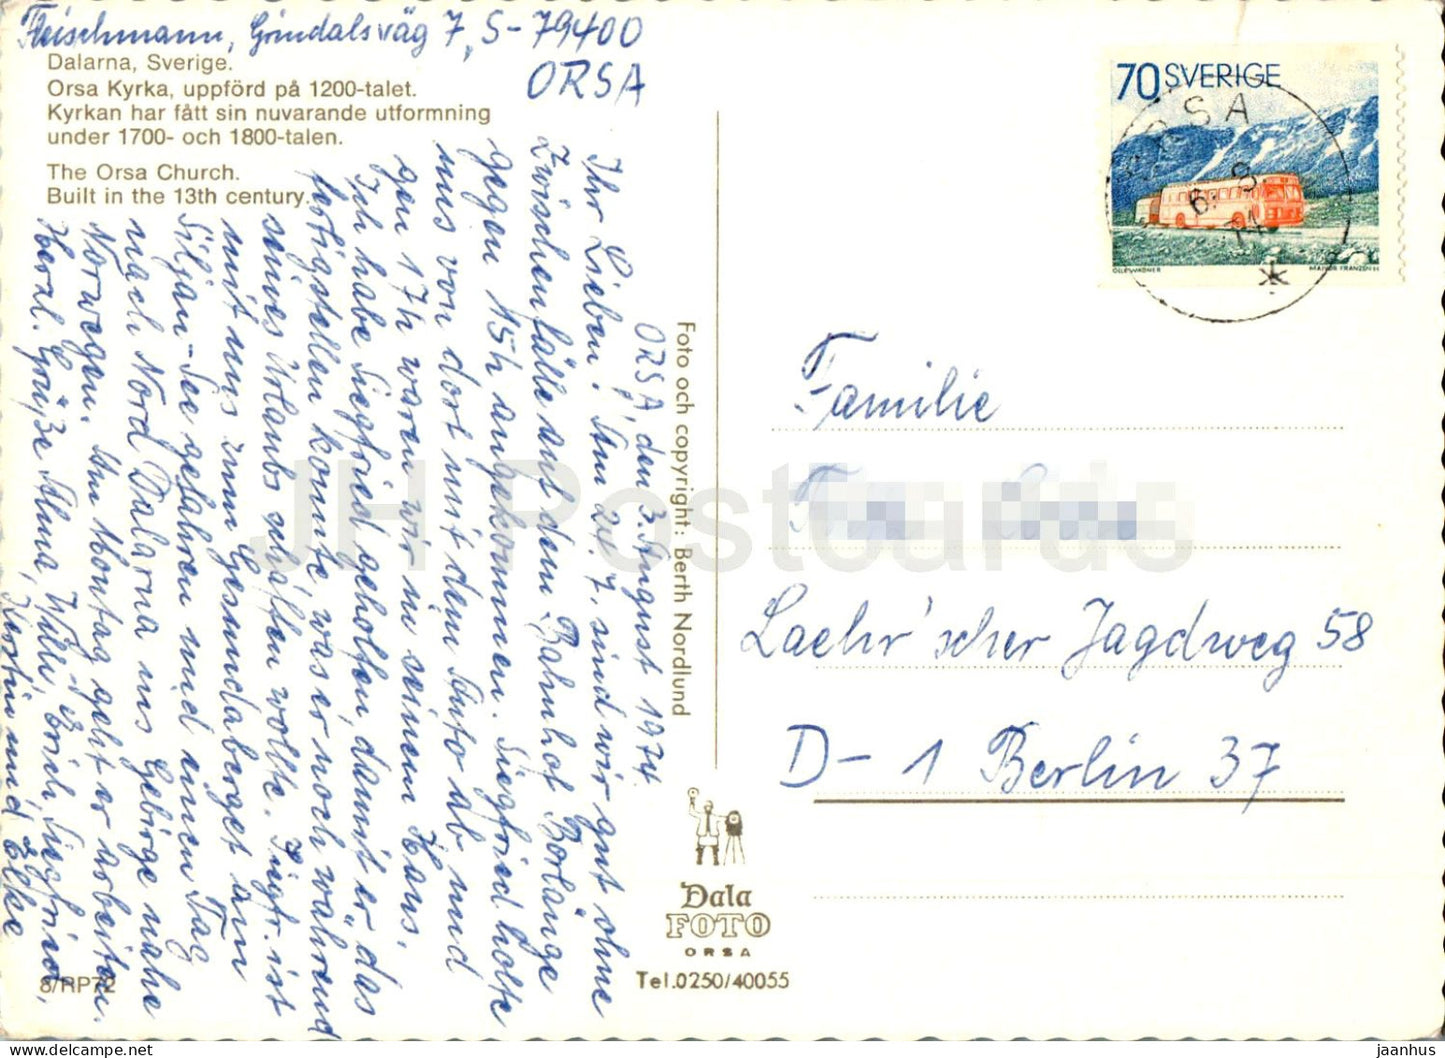 Fleischmann, Grindalsväg 7, S-79400
ORSA
Dalarna, Sverige.
Orsa Kyrka, uppförd på 1200-talet.
Kyrkan har fått sin nuvarande utformning
under 1700- och 1800-talen.
The Orsa Church.
Built in the 13th century.
ORSA, den 3. August 1974.
Ihr Lieben! Am 24.7. sind wir gut ohne
Zwischenfälle auf dem Bahnhof Borlänge
gegen 15h angekommen. Siegfried holte
uns von dort mit dem Auto ab und
gegen 17h waren wir in seinem Haus.
Ich habe Siegfried geholfen damit er das
fertigstellen konnte, was er noch während
seines Urlaubs schaffen wollte. Siegfr. ist
mit uns zum Gesundaberget am
Siljan-See gefahren und einen Tag
nach Nord Dalarna ins Gebirge nahe
Norwegen. Am Montag geht er arbeiten.
Herzl. Grüße Alma, Willi, Erich, Siegfried,
Kerstin und Elke
8/RP72
Foto och copyright: Berth Nordlund
Dala
FOTO
ORSA
Tel.0250/40055
70 SVERIGE
OLLE WAGNER
MAJVOR FRANZÉN
ORSA
6. 8
74
Familie
Laehr'scher Jagdweg 58
D-1 Berlin 37
JH Postcards
jaanhus — https://www.delcampe.net